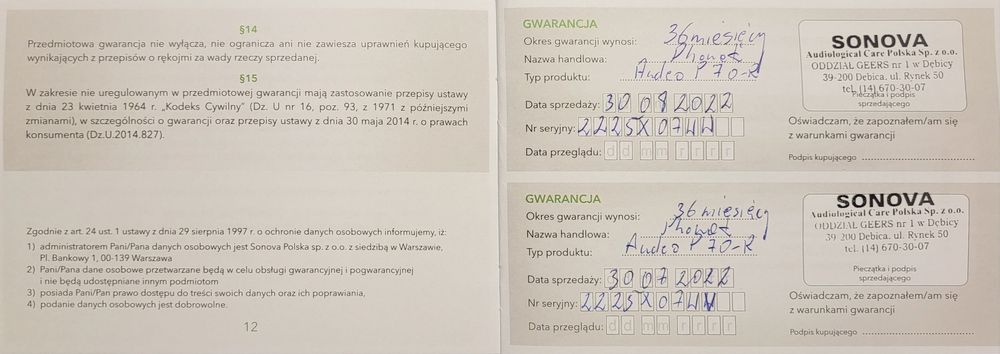 §14
Przedmiotowa gwarancja nie wyłącza, nie ogranicza ani nie zawiesza uprawnień kupującego
wynikających z przepisów o rękojmi za wady rzeczy sprzedanej.
§15
W zakresie nie uregulowanym w przedmiotowej gwarancji mają zastosowanie przepisy ustawy
z dnia 23 kwietnia 1964 r. „Kodeks Cywilny” (Dz. U nr 16, poz. 93, z 1971 z późniejszymi
zmianami), w szczególności o gwarancji oraz przepisy ustawy z dnia 30 maja 2014 r. o prawach
konsumenta (Dz.U.2014.827).
Zgodnie z art. 24 ust. 1 ustawy z dnia 29 sierpnia 1997 r. o ochronie danych osobowych informujemy, iż:
1) administratorem Pani/Pana danych osobowych jest Sonova Polska sp. z o.o. z siedzibą w Warszawie,
Pl. Bankowy 1, 00-139 Warszawa
2) Pani/Pana dane osobowe przetwarzane będą w celu obsługi gwarancyjnej i pogwarancyjnej
i nie będą udostępniane innym podmiotom
3) posiada Pani/Pan prawo dostępu do treści swoich danych oraz ich poprawiania,
4) podanie danych osobowych jest dobrowolne.
12
GWARANCJA
Okres gwarancji wynosi: 36 miesięcy
Nazwa handlowa: Phonak
Typ produktu: Audeo P 70-R
Data sprzedaży: 30 08 2022
Nr seryjny: 2225X07
Data przeglądu: d d m m r r r r
SONOVA
Audiological Care Polska Sp. z o.o.
ODDZIAŁ GEERS nr 1 w Dębicy
39-200 Dębica, ul. Rynek 50
tel. (14) 670-30-07
Pieczątka i podpis
sprzedającego
Oświadczam, że zapoznałem/am się
z warunkami gwarancji
Podpis kupującego
GWARANCJA
Okres gwarancji wynosi: 36 miesięcy
Nazwa handlowa: Phonak
Typ produktu: Audeo P 70-R
Data sprzedaży: 30 07 2022
Nr seryjny: 2225X07
Data przeglądu: d d m m r r r r
SONOVA
Audiological Care Polska Sp. z o.o.
ODDZIAŁ GEERS nr 1 w Dębicy
39-200 Dębica, ul. Rynek 50
tel. (14) 670-30-07
Pieczątka i podpis
sprzedającego
Oświadczam, że zapoznałem/am się
z warunkami gwarancji
Podpis kupującego